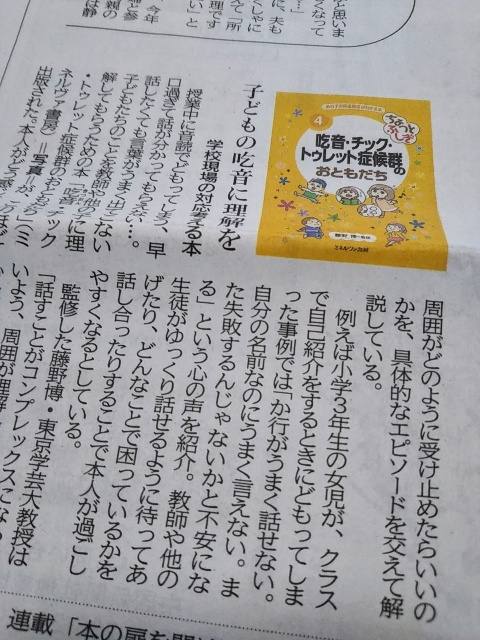 子どもの吃音に理解を
学校現場の対応する本
授業中に音読でどもってしまう、早
口過ぎて話が分かってもらえない、
話したくても言葉がうまく出ない…。
子どもたちのことを教師や他の子に理
解してもらうための本「吃音・チック
・トゥレット症候群のおともだち」(ミ
ネルヴァ書房)=写真=が
出版された。本人がどう感
周囲がどのように受け止めたらいいの
かを、具体的なエピソードを交えて解
説している。
例えば小学3年生の女児が、クラス
で自己紹介をするときにどもってしま
った事例では「か行がうまく話せない。
自分の名前なのにうまく言えない。ま
た失敗するんじゃないかと不安にな
る」という心の声を紹介。教師や他の
生徒がゆっくり話せるように待ってあ
げたり、どんなことで困っているかを
話し合ったりすることで本人が過ごし
やすくなるとしている。
監修した藤野博・東京学芸大教授は
「話すことがコンプレックスになら
いよう、周囲が理解
ちょっとふしぎ
4
吃音・チック・
トゥレット症候群の
おともだち
藤野 博・監修
ミネルヴァ書房
連載「本の扉を開け